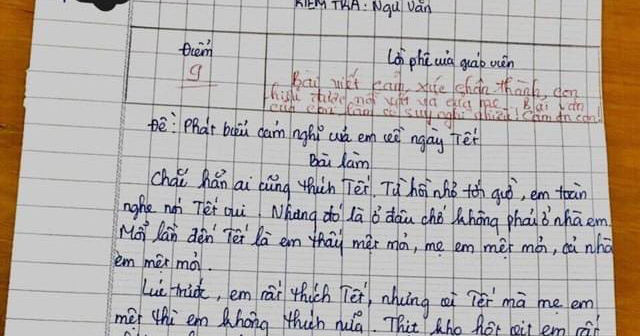 KIỂM TRA: Ngữ Văn
Điểm
Lời phê của giáo viên
9
Bài viết cảm xúc chân thành, con
hiểu được nỗi vất vả của mẹ. Bài văn
của con làm cô suy nghĩ nhiều! Cảm ơn con!
Đề: Phát biểu cảm nghĩ của em về ngày Tết
Bài làm
Chắc hẳn ai cũng thích Tết. Từ hồi nhỏ tới giờ, em toàn
nghe nói Tết vui. Nhưng đó là ở đâu chớ không phải ở nhà em.
Mỗi lần đến Tết là em thấy mệt mỏi, mẹ em mệt mỏi, cả nhà
em mệt mỏi.
Lúc trước, em rất thích Tết, nhưng vì Tết mà mẹ em
mệt thì em không thích nữa. Thịt kho hột vịt em rất